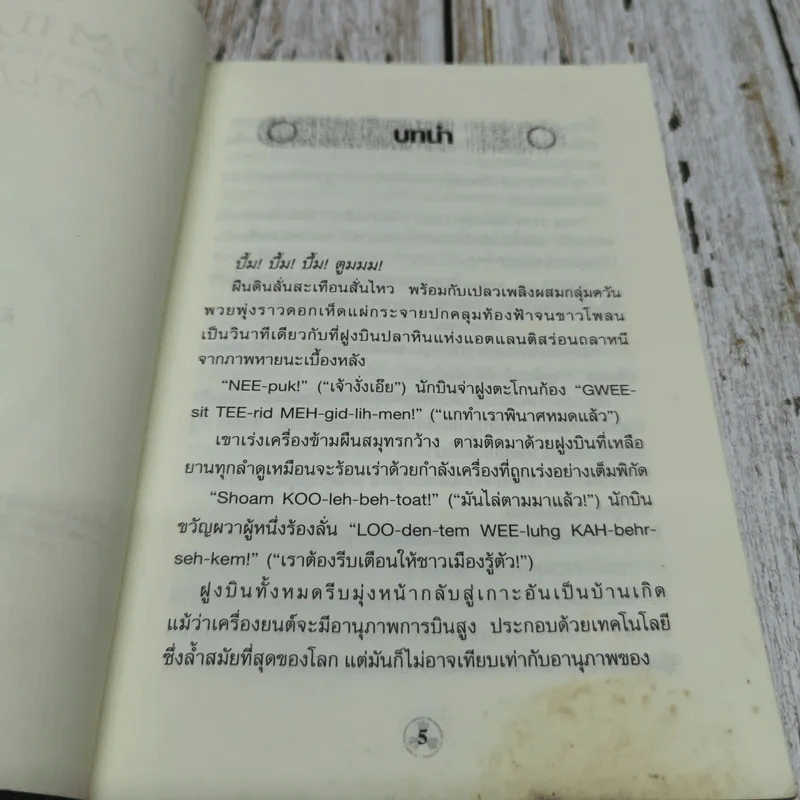 บทนำ
บึ้ม! บึ้ม! บึ้ม! ตูมมม!
ผืนดินลั่นสะเทือนสั่นไหว พร้อมกับเปลวเพลิงผสมกลุ่มควัน
พวยพุ่งราวดอกเห็ดแผ่กระจายปกคลุมท้องฟ้าจนขาวโพลน
เป็นวินาทีเดียวกับที่ฝูงบินปลาหินแห่งแอตแลนติสร่อนถลาหนี
จากภาพหายนะเบื้องหลัง
“NEE-puk!” (“เจ้างั่งเอ๊ย”) นักบินจ่าฝูงตะโกนก้อง “GWEE-
sit TEE-rid MEH-gid-lih-men!” (“แกทำเราพินาศหมดแล้ว”)
เขาเร่งเครื่องข้ามผืนสมุทรกว้าง ตามติดมาด้วยฝูงบินที่เหลือ
ยานทุกลำดูเหมือนจะร้อนเร่าด้วยกำลังเครื่องที่ถูกเร่งอย่างเต็มพิกัด
“Shoam KOO-leh-beh-toat!” (“มันไล่ตามมาแล้ว!”) นักบิน
ขวัญผวาผู้หนึ่งร้องลั่น “LOO-den-tem WEE-luhg KAH-behr-
seh-kem!” (“เราต้องรีบเตือนให้ชาวเมืองรู้ตัว!”)
ฝูงบินทั้งหมดรีบมุ่งหน้ากลับสู่เกาะอันเป็นบ้านเกิด
แม้ว่าเครื่องยนต์จะมีอานุภาพการบินสูง ประกอบด้วยเทคโนโลยี
ซึ่งล้ำสมัยที่สุดของโลก แต่มันก็ไม่อาจเทียบเท่ากับอานุภาพของ
5